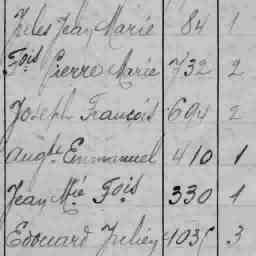 Jules Jean Marie 84 1
Fois Pierre Marie 732 2
Joseph François 694 2
Augte Emmanuel 410 1
Jean Mie Fois 330 1
Edouard Julien 1035 3